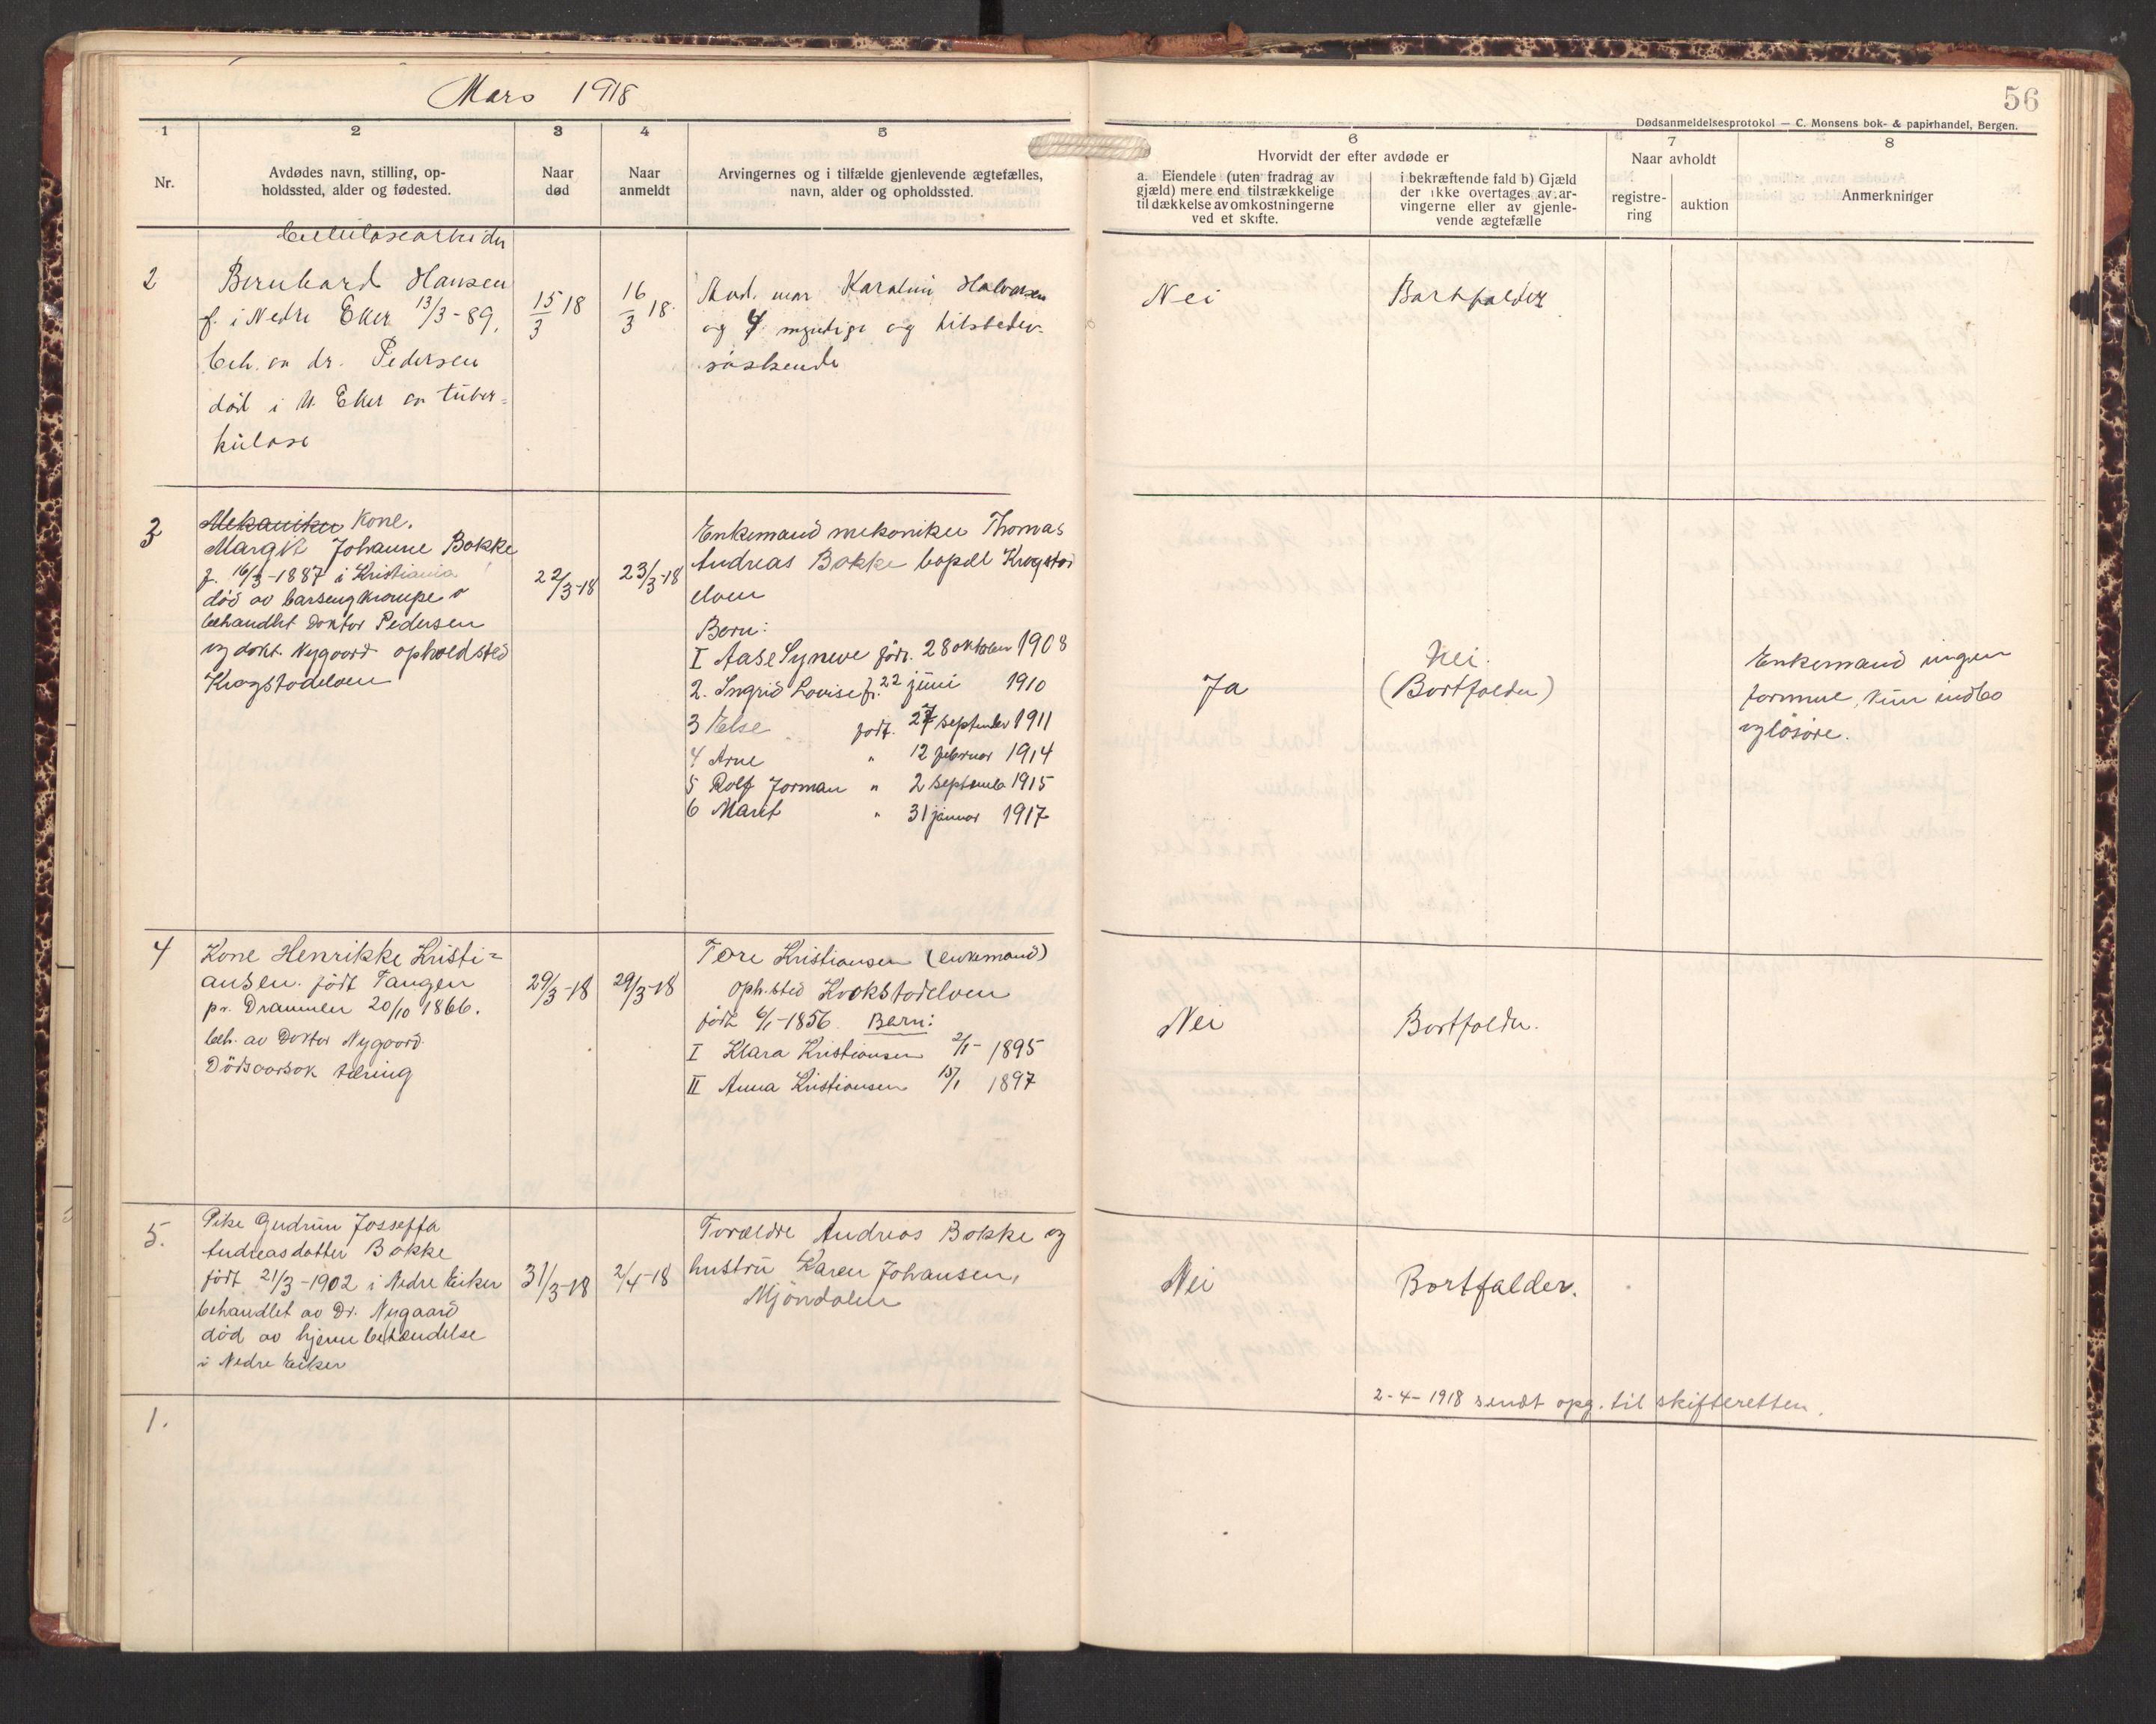 Mars 1918
56
Dødsanmeldelsesprotokol — C. Monsens bok- & papirhandel, Bergen.
1
2
3
4
5
6
7
8
Nr.
Avdødes navn, stilling, op-
holdssted, alder og fødested.
Naar
død
Naar
anmeldt
Arvingernes og i tilfælde gjenlevende ægtefælles,
navn, alder og opholdssted.
Hvorvidt der efter avdøde er
a. Eiendele (uten fradrag av
gjæld) mere end tilstrækkelige
til dækkelse av omkostningerne
ved et skifte.
i bekræftende fald b) Gjæld
der ikke overtages av ar-
vingerne eller av gjenle-
vende ægtefælle
Naar avholdt
registre-
ring
auktion
Anmerkninger
Cellulosearbeider
2
Bernhard Hansen
f. i Nedre Eker 13/3-89,
beh. av dr. Pedersen
død i N. Eker av tuber=
kulose
15/3 18
16/3 18.
mor Karoline Halvorsen
og 4 myndige og tilstedev.
søskende
Nei
Bortfalder
3
Mekaniker Kone.
Margit Johanne Bakke
f. 16/3-1887 i Kristiania
død av barsengkrampe
behandlet Doktor Pedersen
og dokt. Nygaard opholdsted
Krogstadelven
22/3-18
23/3-18
Enkemand mekaniker Thomas
Andreas Bakke bopæl Krogstad
elven
Børn:
I Aase Synøve født. 28 oktober 1908
2. Ingrid Lovise f. 22 juni 1910
3 Else født. 27 september 1911
4 Arne " 12 februar 1914
5 Rolf Jorman " 2 september 1915
6 Marit " 31 januar 1917
Ja
Nei.
(Bortfalder)
Enkemand ingen
formue, kun indbo
og løsøre.
4
Kone Henrikke Kristi=
ansen. født Tangen
pr. Drammen 20/10 1866.
beh. av Doktor Nygaard.
Dødsaarsak tæring
29/3-18
29/3-18
Tore Kristiansen (enkemand)
oph.sted Krokstadelven
født 6/1-1856 Børn:
I Klara Kristiansen 2/1- 1895
II Anna Kristiansen 15/1 1897
Nei
Bortfalder.
5.
Pike Gudrun Josseffa
Andreasdatter Bakke
født 21/3-1902 i Nedre Eiker
behandlet av Dr. Nygaard
død av hjernebetændelse
i Nedre Eiker
31/3-18
2/4-18
Forældre Andreas Bakke og
hustru Karen Johansen,
Mjøndalen
Nei
Bortfalder.
2-4-1918 sendt opg. til skifteretten.
1.